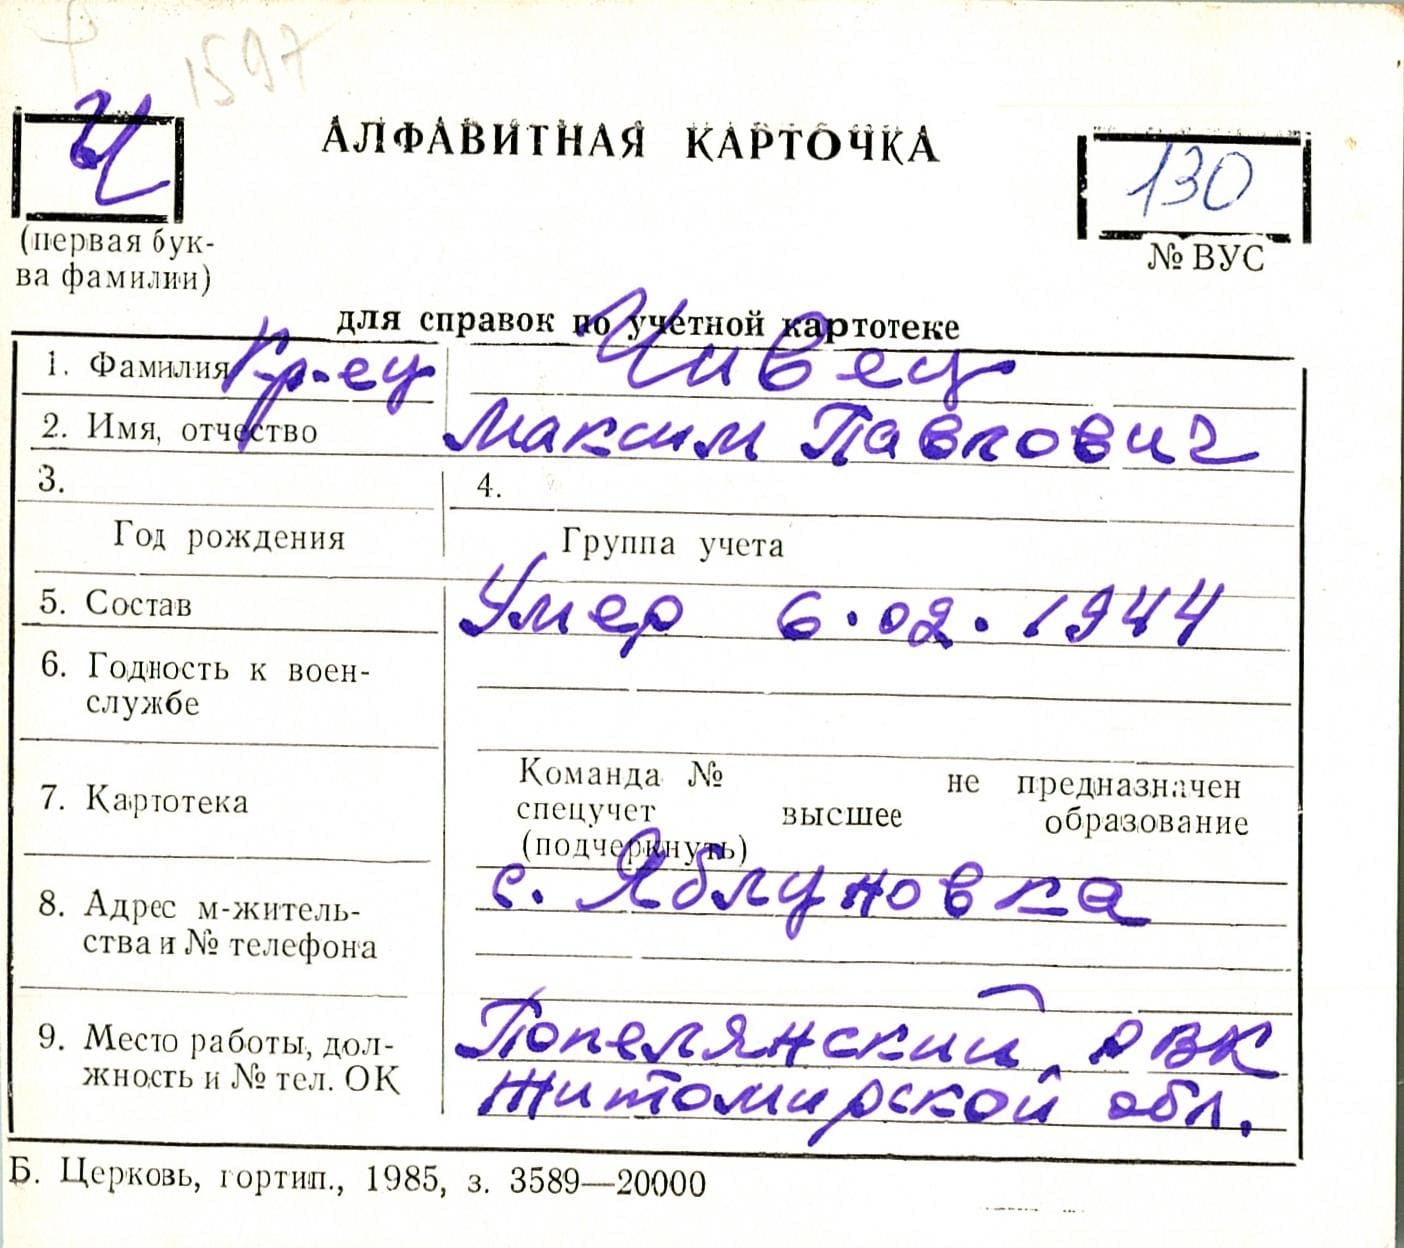 1597
Ч
АЛФАВИТНАЯ КАРТОЧКА
130
(первая бук-
ва фамилии)
№ ВУС
для справок по учетной картотеке
1. Фамилия Кр-ец Чивец
2. Имя, отчество Максим Павлович
3. 4.
Год рождения Группа учета
5. Состав Умер 6.02.1944
6. Годность к воен-
службе
7. Картотека
Команда № не предназначен
спецучет высшее образование
(подчеркнуть)
8. Адрес м-житель-
ства и № телефона
с. Яблуновка
9. Место работы, дол-
жность и № тел. ОК
Попелянский РВК
Житомирской обл.
Б. Церковь, гортип., 1985, з. 3589—20000